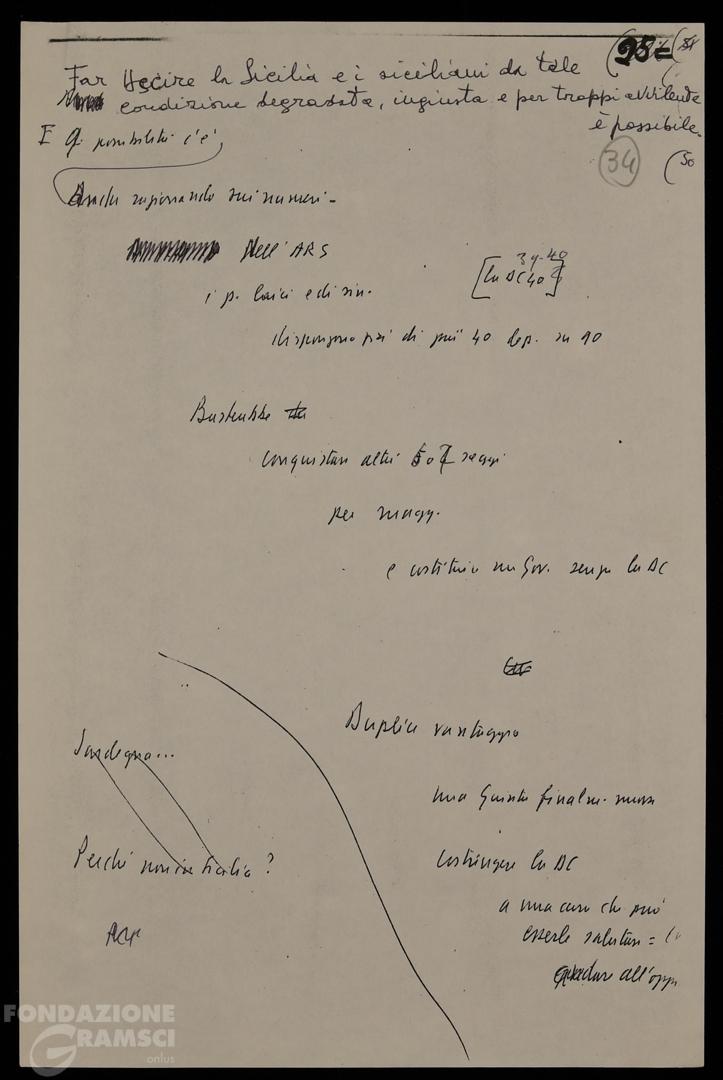 25=
Far uscire la Sicilia e i siciliani da tale
condizione degradata, ingiusta e per troppi avvilente
è possibile.
E q. possibilità c'è,
34
(50
Anche ragionando sui numeri -
Nell'ARS
39-40
[la DC 40]
i p. laici e di sin.
dispongono già di più 40 dep. su 90
Basterebbe
conquistare altri 6 o 7 seggi
per magg.
e costituire un Gov. senza la DC
Duplice vantaggio
Sardegna...
una Giunta finalm. nuova
Perché non in Sicilia?
Costringere la DC
a una cura che può
esserle salutare =
andare all'opp
FONDAZIONE
GRAMSCI
onlus